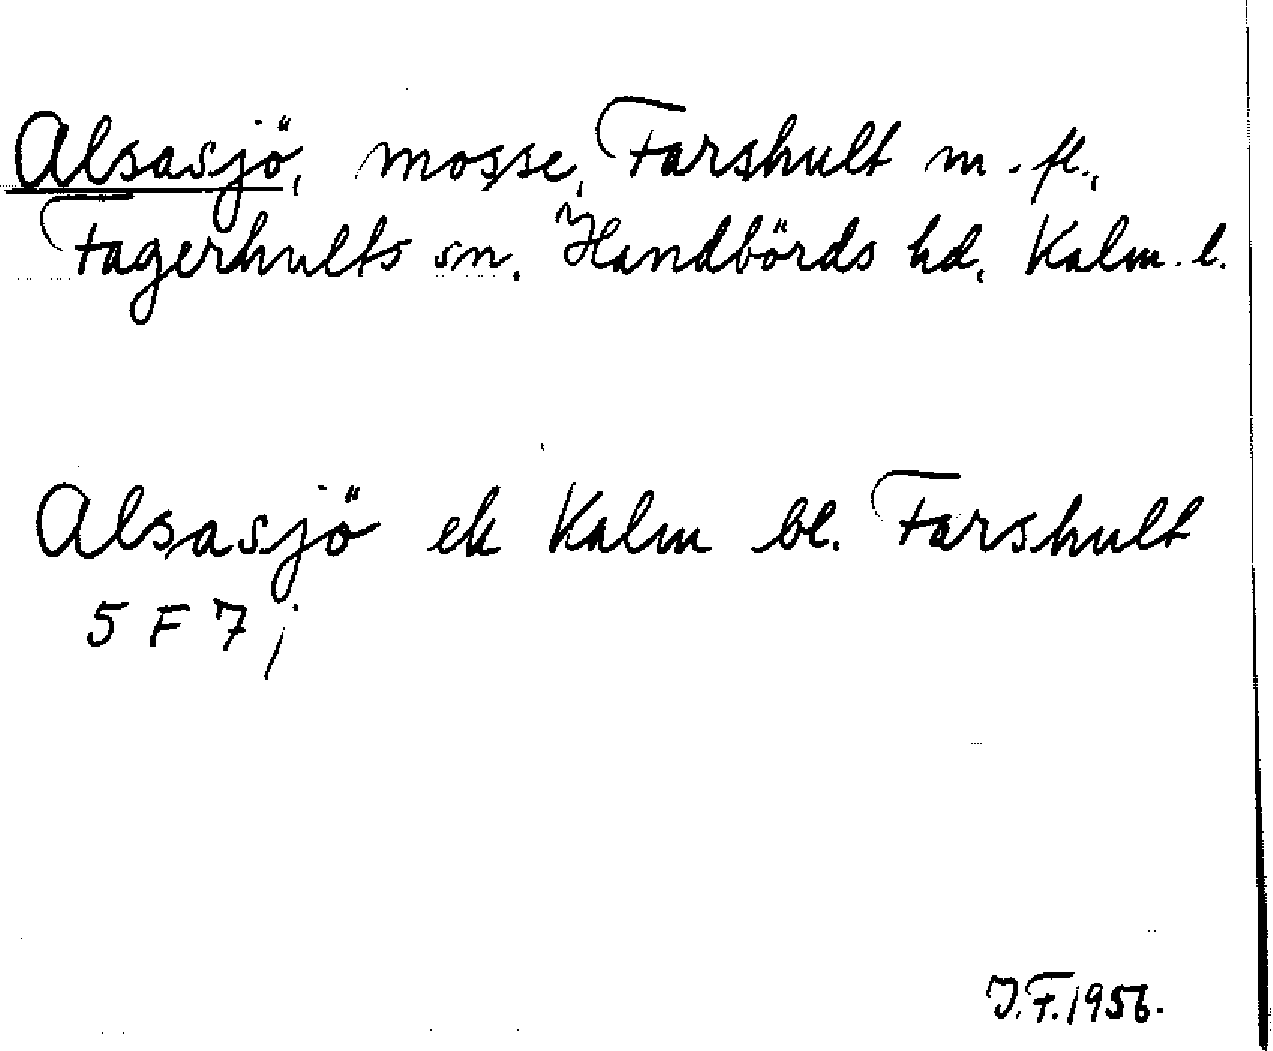 Alsasjö, mosse, Farshult m. fl.,
Fagerhults sn. Handbörds hd, Kalm. l.
Alsasjö ek Kalm bl. Farshult
5 F 7 j
J.F. 1956.